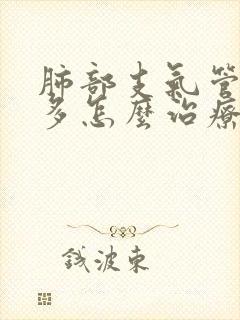 肺部支氣管
多怎麼治療
錢波東